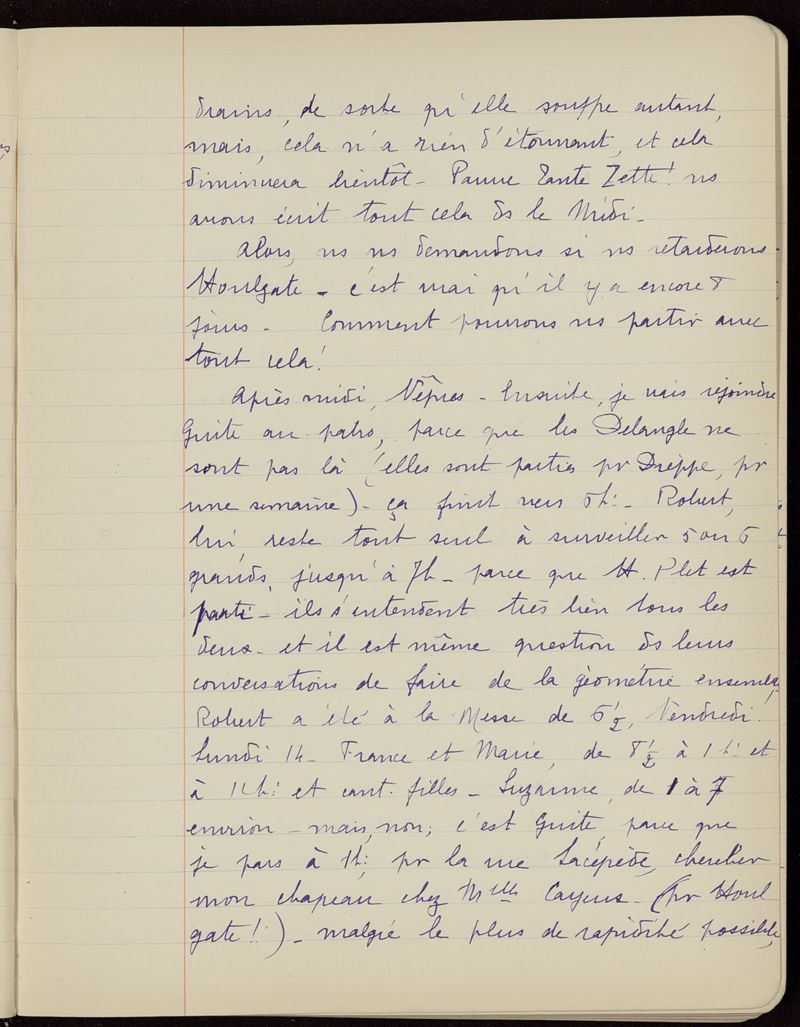 drains, de sorte qu'elle souffre autant,
mais, cela n'a rien d'étonnant, et cela
diminuera bientôt - Pauvre Tante Zette! ns
avons écrit tout cela ds le Midi -
Alors, ns ns demandons si ns retarderons
Houlgate - c'est vrai qu'il y a encore 8
jours - Comment pourrons ns partir avec
tout cela!
Après midi, Vêpres - Ensuite, je vais rejoindre
Guite au patro, parce que les Delangle ne
sont pas là (elles sont parties pr Dieppe, pr
une semaine) - ça finit vers 6h: - Robert,
lui, reste tout seul à surveiller 5 ou 6
grands, jusqu'à 7h - parce que H. Plet est
parti - ils s'entendent très bien tous les
deux - et il est même question ds leurs
conversations de faire de la géométrie ensemble,
Robert a été à la Messe de 6½, Vendredi!
Lundi 14 - France et Marie, de 8½ à 1h: et
à 1h: et cant. filles - Suzanne, de 1 à 7
environ - mais, non; c'est Guite, parce que
je pars à 1h:, pr la rue Lacépède, chercher
mon chapeau chez Mlle Cayeux - (pr Houl
gate!) - malgré le plus de rapidité possible,